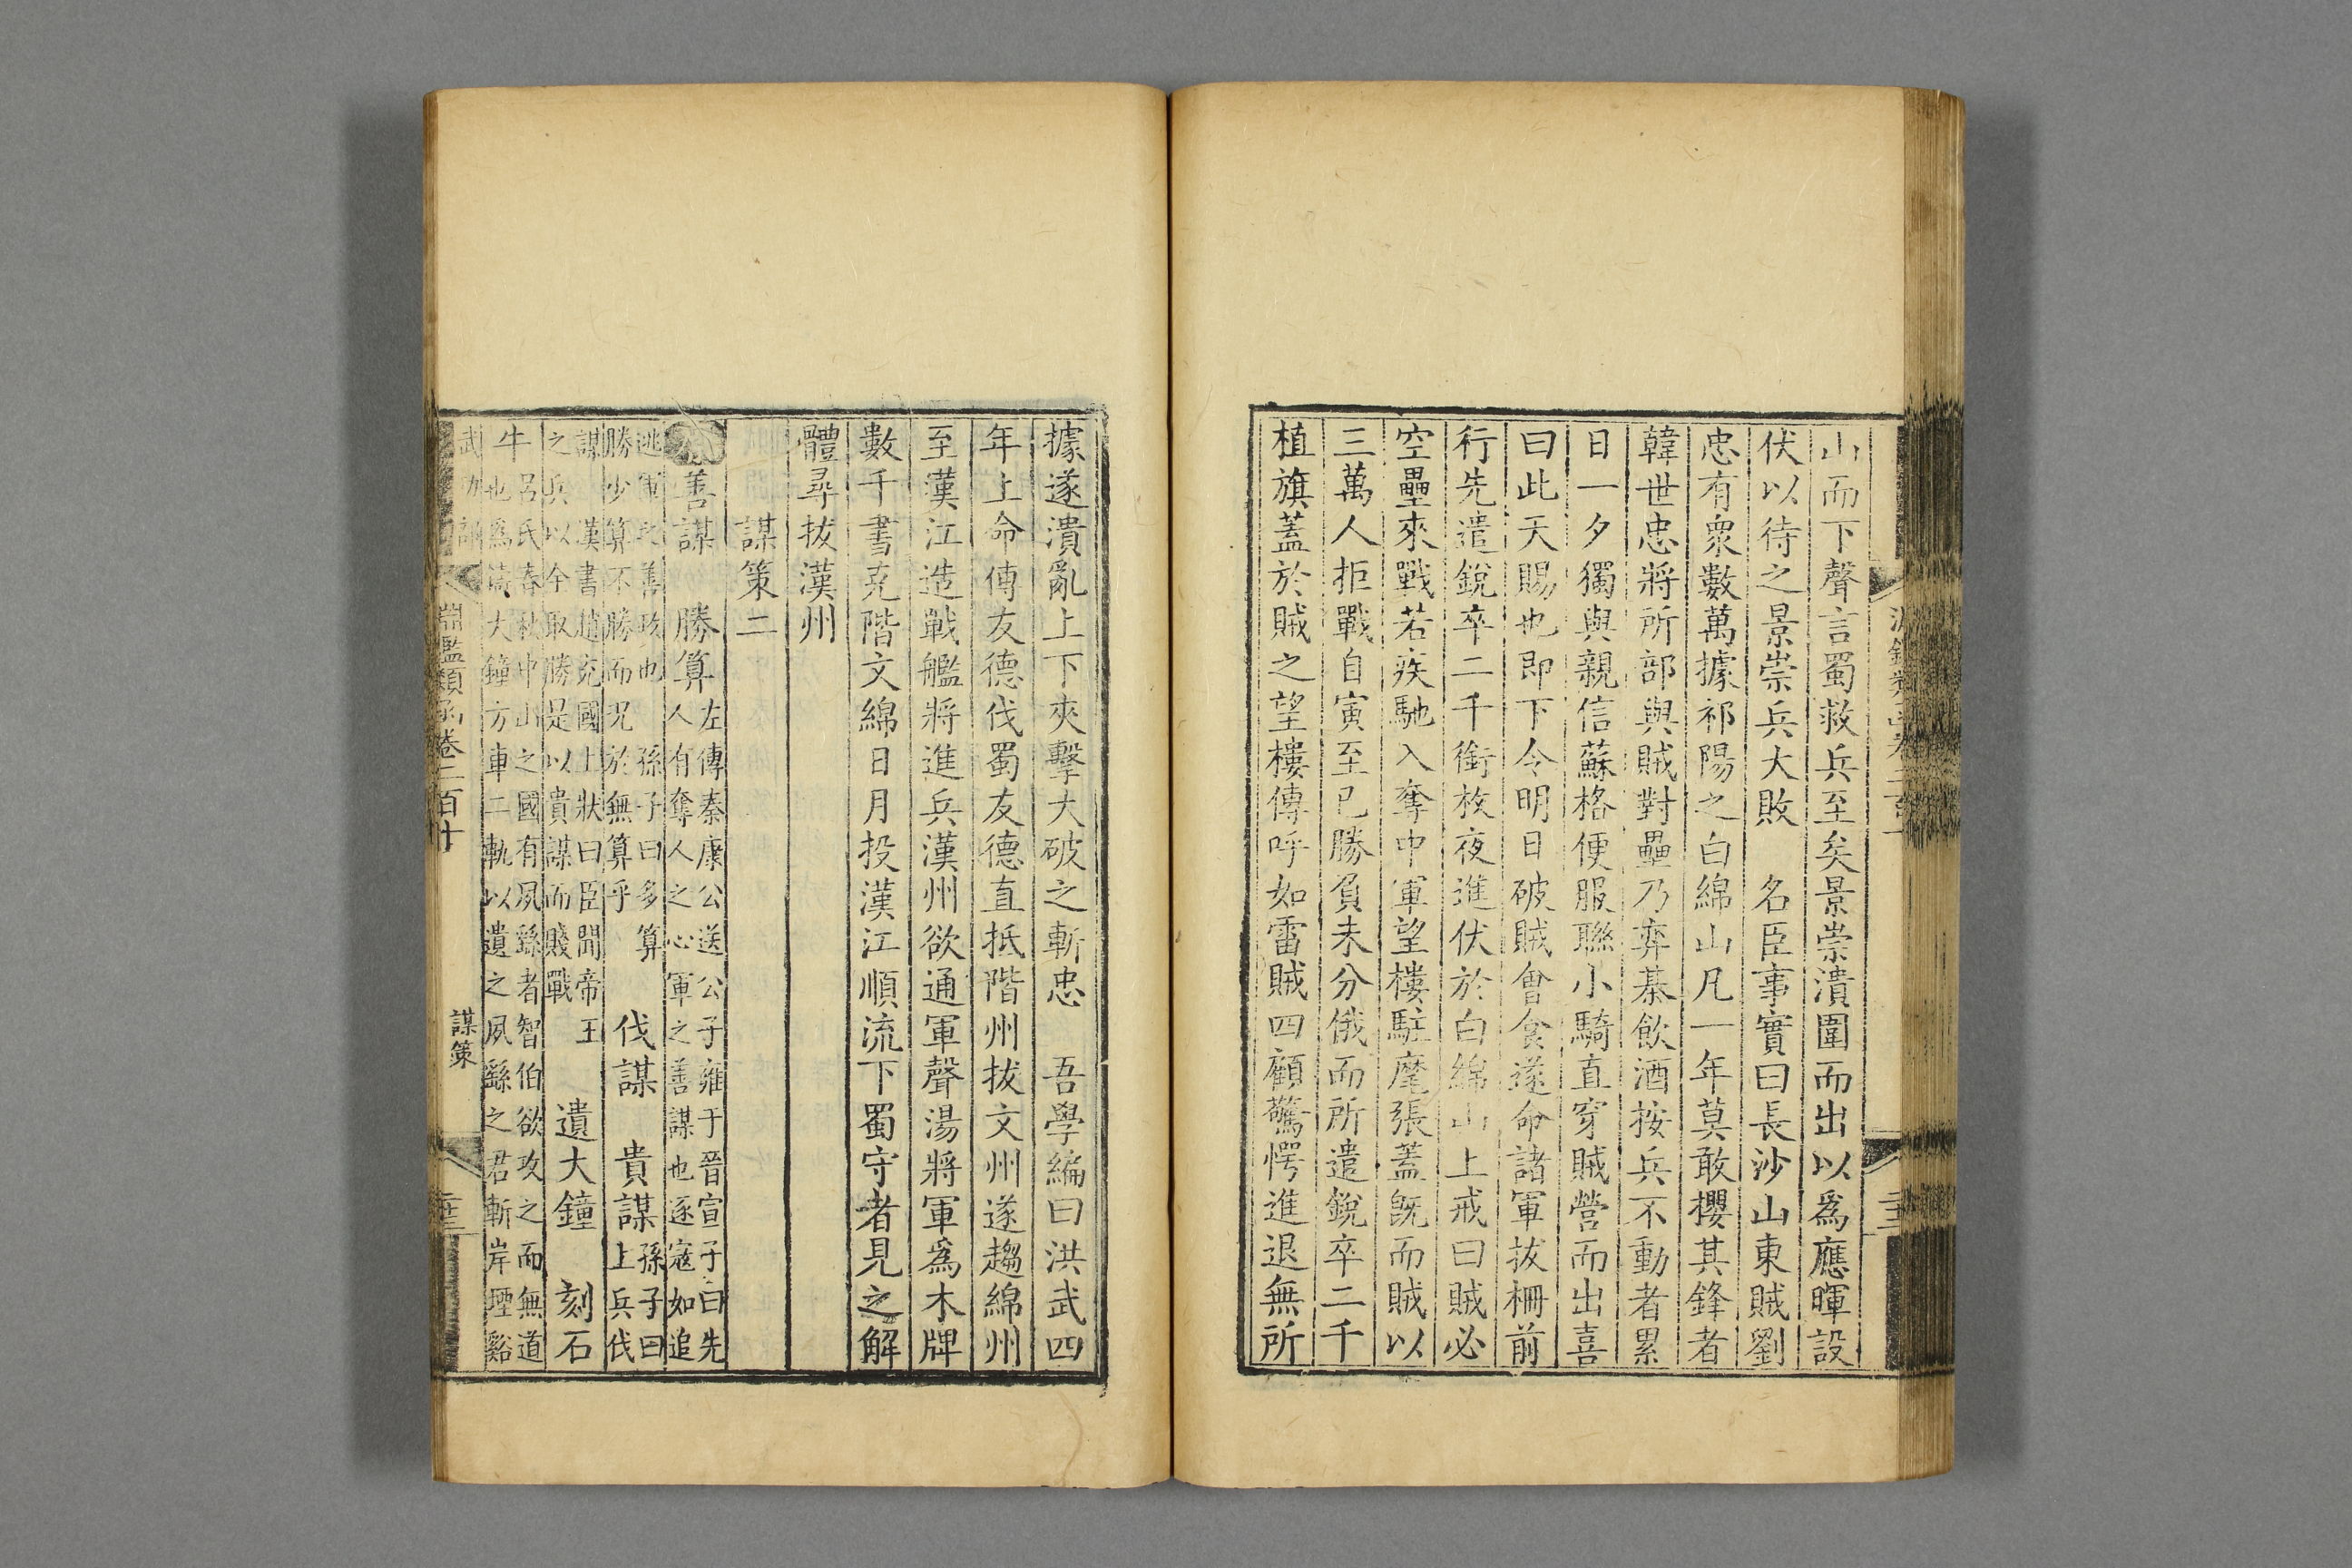 山而下聲言蜀救兵至矣景崇潰圍而出以爲應暉設
伏以待之景崇兵大敗　名臣事實曰長沙山東賊劉
忠有衆數萬據祁陽之白綿山凡一年莫敢攖其鋒者
韓世忠將所部與賊對壘乃弈棊飲酒按兵不動者累
日一夕獨與親信蘇格便服聯小騎直穿賊營而出喜
曰此天賜也即下令明日破賊會食遂命諸軍拔柵前
行先遣銳卒二千銜枚夜進伏於白綿山上戒曰賊必
空壘來戰若疾馳入奪中軍望樓駐麾張蓋旣而賊以
三萬人拒戰自寅至巳勝負未分俄而所遣銳卒二千
植旗蓋於賊之望樓傳呼如雷賊四顧驚愕進退無所
據遂潰亂上下夾擊大破之斬忠　吾學編曰洪武四
年上命傅友德伐蜀友德直抵階州拔文州遂趨綿州
至漢江造戰艦將進兵漢州欲通軍聲湯將軍爲木牌
數千書克階文綿日月投漢江順流下蜀守者見之解
體尋拔漢州
謀策二
善謀　勝算
左傳秦康公送公子雍于晉宣子曰先
人有奪人之心軍之善謀也逐寇如追
逃軍之善政也　孫子曰多算
勝少算不勝而況於無算乎
伐謀　貴謀
孫子曰
上兵伐
謀　漢書趙充國上狀曰臣聞帝王
之兵以全取勝是以貴謀而賤戰
遺大鐘　刻石
牛
呂氏春秋中山之國有夙繇者智伯欲攻之而無道
也爲鑄大鐘方車二軌以遺之夙繇之君斬岸堙谿
武功部
淵鑑類函卷二百十
謀策